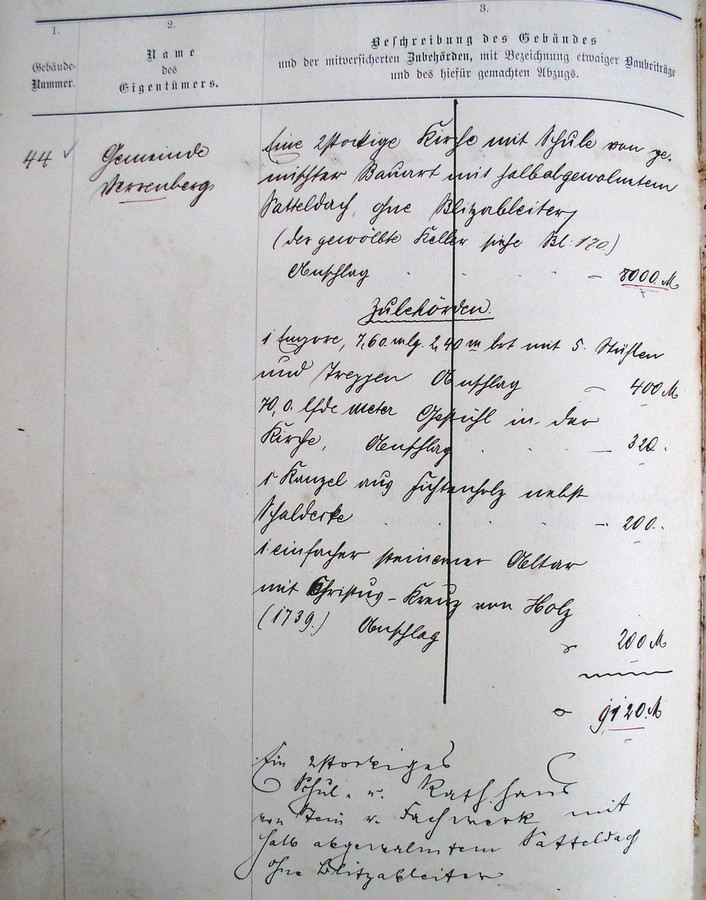 1.
2.
3.
Gebäude-
Nummer.
Name
des
Eigentümers.
Beschreibung des Gebäudes
und der mitversicherten Zubehörden, mit Bezeichnung etwaiger Baubeiträge
und des hiefür gemachten Abzugs.
44
Gemeinde
Verrenberg
Eine 2stockige Kirche mit Schule von ge-
mischter Bauart mit halbabgewalmtem
Satteldach, ohne Blizableiter,
(der gewölbte Keller siehe Bl. 120)
Anschlag – 8000. M
Zubehörden.
1 Empore, 7,60. m lg. 2,40 m brt mit 5. Stühlen
und Treppen Anschlag – 400 M
70,0. lfde meter Gestühl in der
Kirche, Anschlag – 320.
1 Kanzel aus Fichtenholz nebst
Schaldecke – 200.
1 einfacher steinerner Altar
mit Christus-Kreuz von Holz
(1739.) Anschlag 200 M
9120. M
Ein 2stockiges
Schul- u. Rathhaus
von Stein u. Fachwerk mit
halb abgewalmtem Satteldach
ohne Blitzableiter.